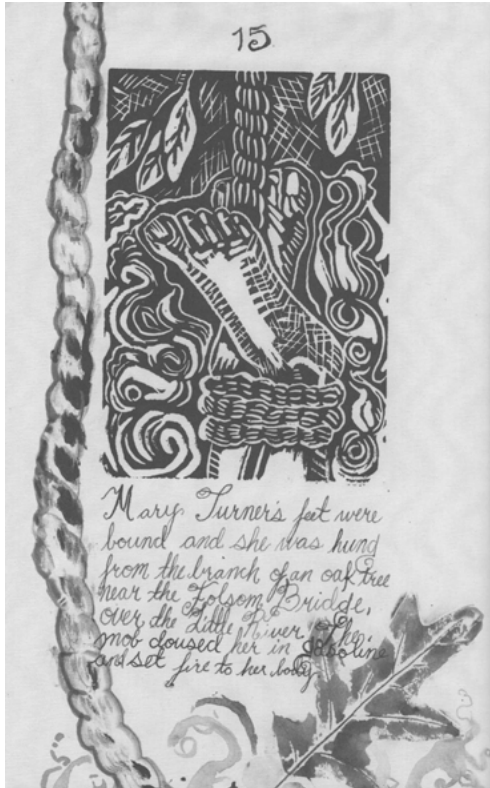 15
Mary Turner's feet were
bound and she was hung
from the branch of an oak tree
near the Folsom Bridge,
over the Little River. The
mob doused her in gasoline
and set fire to her body.